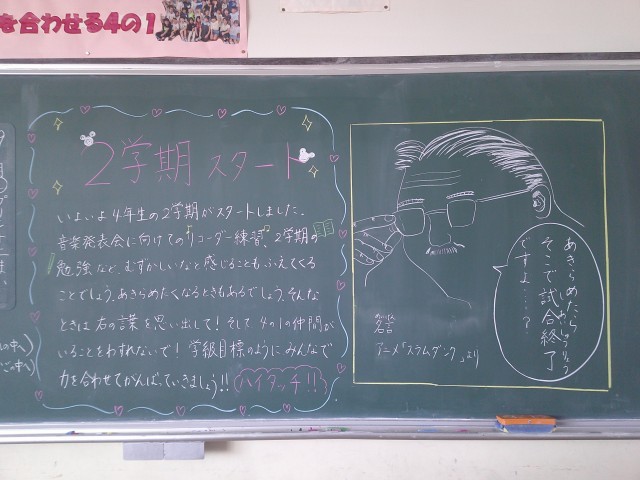 を合わせる4の1
2学期 スタート
いよいよ4年生の2学期がスタートしました。
音楽発表会に向けてのリコーダー練習、2学期の
勉強など、むずかしいなと感じることもふえてくる
ことでしょう。あきらめたくなるときもあるでしょう。そんな
ときは右の言葉を思い出して！そして4の1の仲間が
いることをわすれないで！学級目標のようにみんなで
力を合わせてがんばっていきましょう!!ハイタッチ!!
あきらめたら
そこで試合終了
ですよ…？
めいげん
名言
アニメ「スラムダンク」より